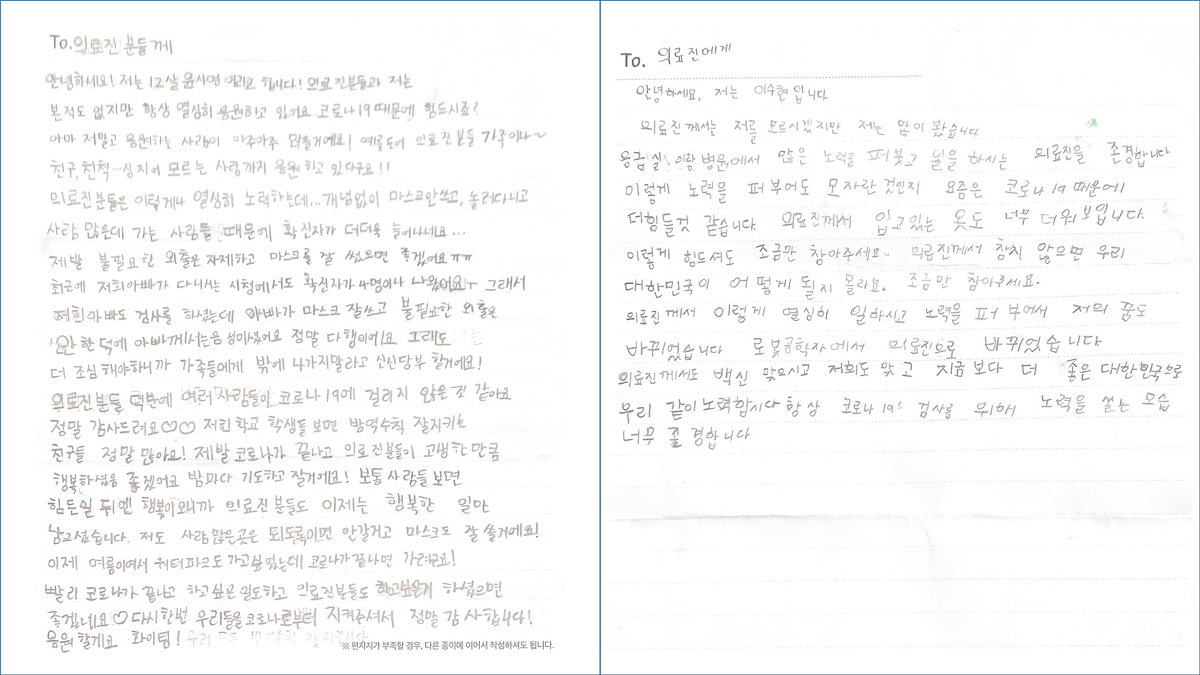 To. 의료진 분들께
안녕하세요! 저는 12살 윤시영 이라고 합니다! 의료진분들과 저는
본적도 없지만 항상 열심히 응원하고 있어요 코로나19 때문에 힘드시죠?
아마 저말고 응원하는 사람이 아주아주 많을거예요! 예를들어 의료진분들 가족이나~
친구, 친척...심지어 모르는 사람까지 응원 하고 있다구요!!
의료진분들은 이렇게나 열심히 노력하는데...개념없이 마스크안쓰고, 놀러다니고
사람 많은데 가는 사람들 때문에 확진자가 더더욱 늘어나네요...
제발 불필요한 외출은 자제하고 마스크를 잘 썼으면 좋겠어요 ㅠㅠ
최근에 저희아빠가 다니시는 시청에서도 확진자가 4명이나 나왔어요ㅜ 그래서
저희아빠도 검사를 하셨는데 아빠가 마스크 잘쓰고 불필요한 외출은
안 한 덕에 아빠께서는 음성이셨어요 정말 다행이에요 그래도
더 조심 해야하니까 가족들에게 밖에 나가지말라고 신신당부 할거예요!
의료진분들 덕분에 여러 사람들이 코로나19에 걸리지 않은 것 같아요
정말 감사드려요♡♡ 저흰 학교 학생들 보면 방역수칙 잘지키는
친구들 정말 많아요! 제발 코로나가 끝나고 의료진분들이 고생한 만큼
행복하셨음 좋겠어요 밤마다 기도하고 잘거에요! 보통 사람들 보면
힘든일 뒤엔 행복이오니까 의료진분들도 이제는 행복한 일만
남으셨습니다. 저도 사람많은곳은 되도록이면 안갈거고 마스크도 잘 쓸거예요!
이제 여름이여서 워터파크도 가고싶었는데 코로나가 끝나면 가려구요!
빨리 코로나가 끝나고 하고싶은 일도하고 의료진분들도 하고싶은거 하셨으면
좋겠네요♡ 다시한번 우리들을 코로나로부터 지켜주셔서 정말 감사합니다!
응원할게요 화이팅! 우리 모두
※ 편지지가 부족할 경우, 다른 종이에 이어서 작성하셔도 됩니다.
To. 의료진에게
안녕하세요, 저는 이수현입니다
의료진께서는 저를 모르시겠지만 저는 많이 봤습니다
응급실, 의랑 병원에서 많은 노력을 퍼붓고 일을 하시는 의료진을 존경합니다
이렇게 노력을 퍼 부어도 모자란 것인지 요즘은 코로나 19 때문에
더힘들것 같습니다. 의료진께서 입고있는 옷도 너무 더워보입니다.
이렇게 힘드셔도 조금만 참아주세요~ 의료진께서 참지 않으면 우리
대한민국이 어떻게 될지 몰라요. 조금만 참아주세요.
의료진께서 이렇게 열심히 일하시고 노력을 퍼부어서 저의 꿈도
바뀌었습니다 로봇공학자에서 의료진으로 바뀌었습니다
의료진께서도 백신 맞으시고 저희도 맞고 지금보다 더 좋은 대한민국으로
우리 같이 노력합시다 항상 코로나 19 검사를 위해 노력을 쏟는 모습
너무 존경합니다